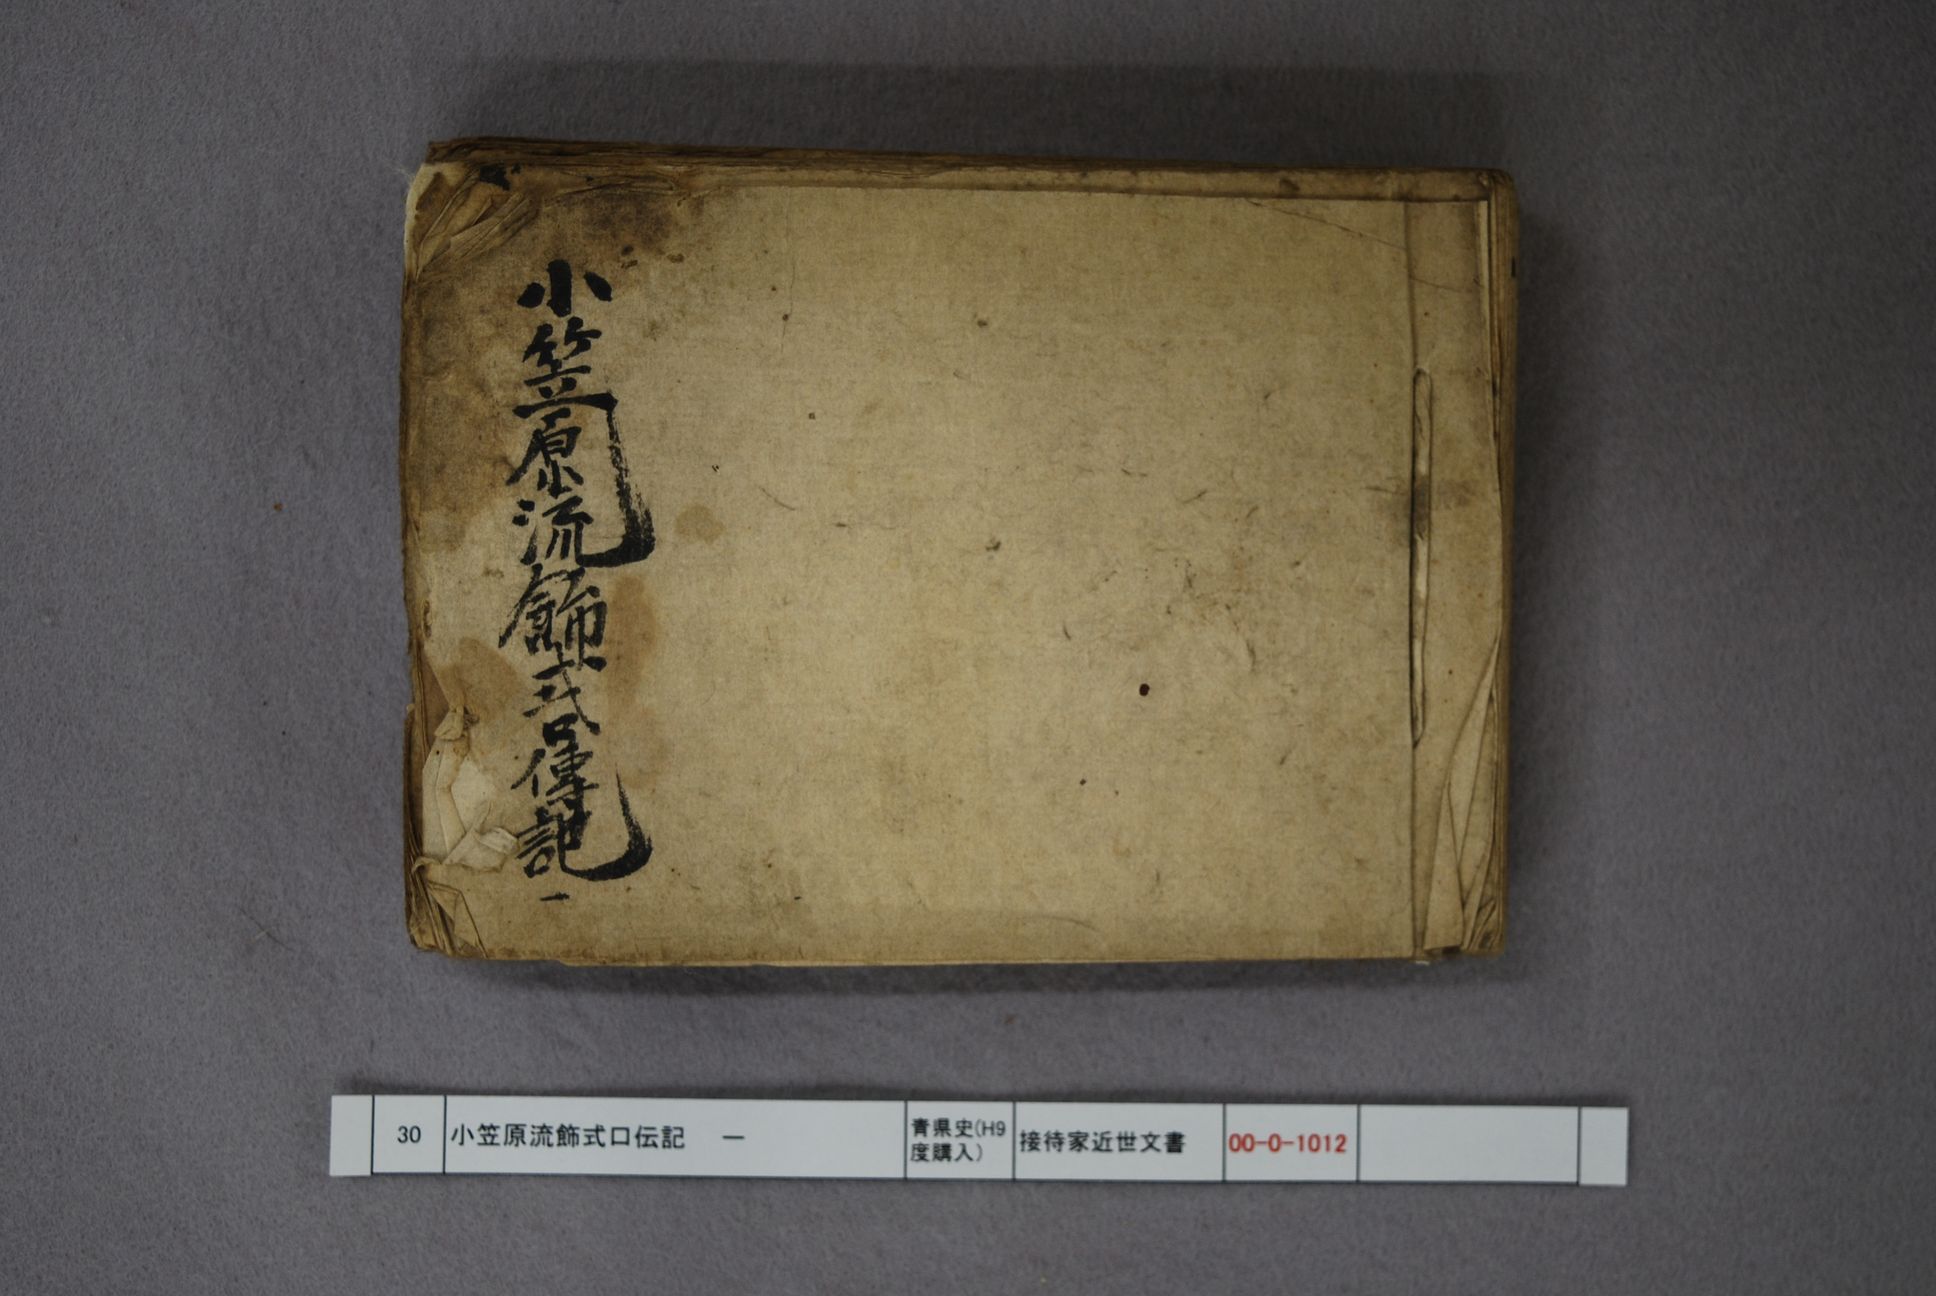 小笠原流飾式口傳記一
30 小笠原流飾式口伝記 一 青県史(H9度購入) 接待家近世文書 00-0-1012